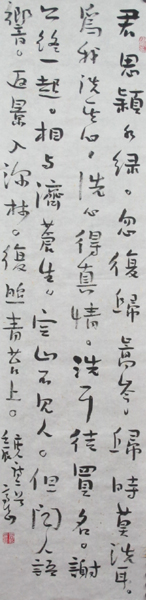 君思潁水緑。忽復歸嵩岑。歸時莫洗耳。
為我洗其心。洗心得真情。洗耳徒買名。謝
公終一起。相与濟蒼生。空山不見人。但聞人語
響。返景入深林。復照青苔上。